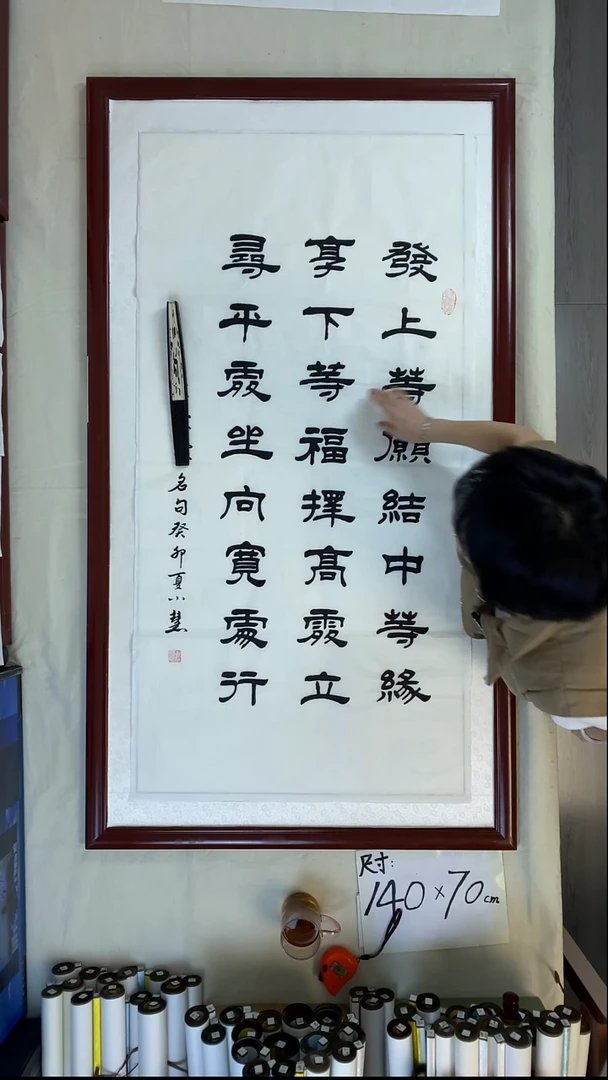 發上等願結中等緣
享下等福擇高處立
尋平處坐向寬處行
名句癸卯夏小慧
尺寸:
140×70cm